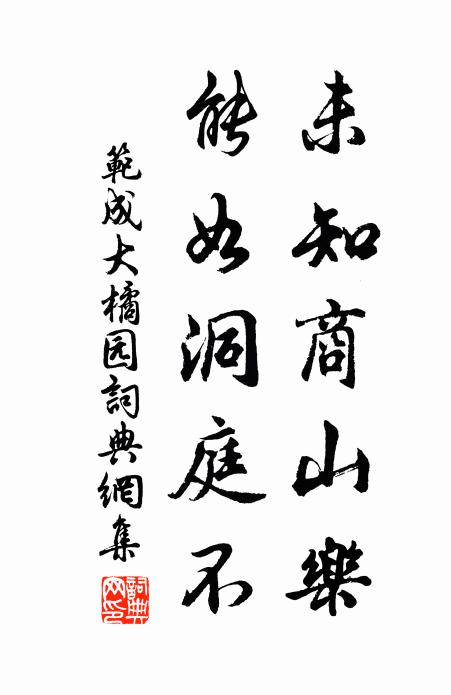 未知商山樂
能如洞庭不
範成大橘园詞典網集
詞典网印